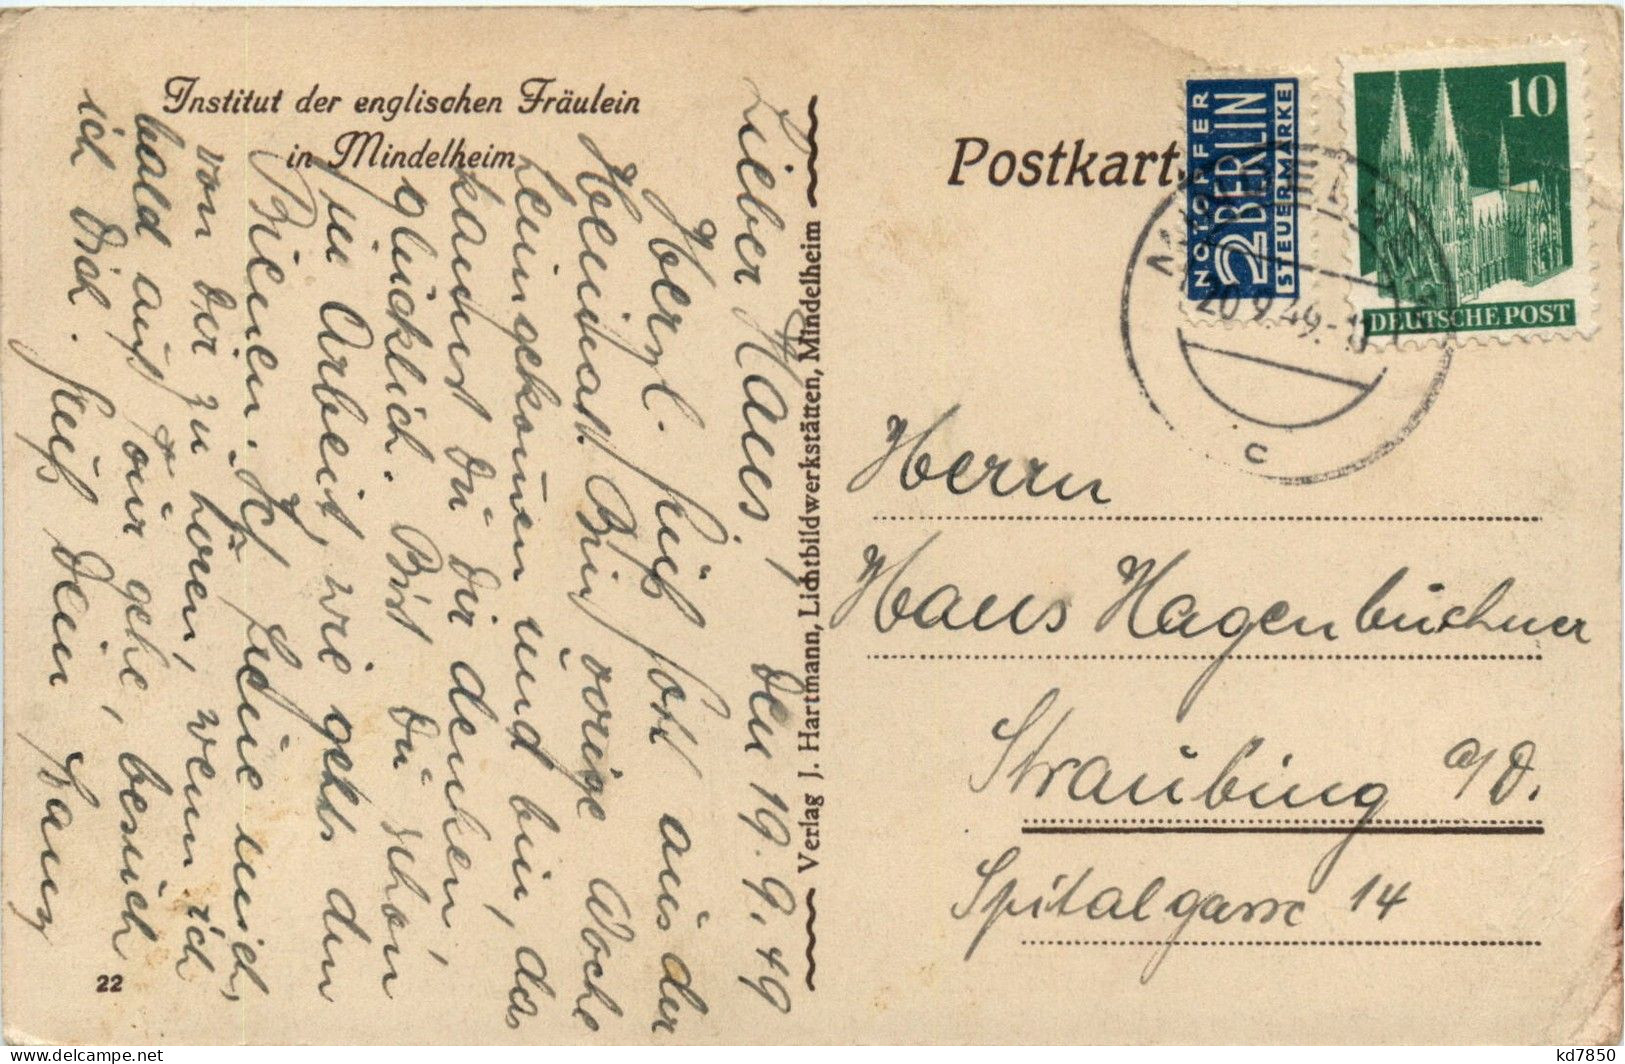 Institut der englischen Fräulein
in Mindelheim
Postkart
NOTOPFER
2 BERLIN
STEUERMARKE
10
DEUTSCHE POST
20.9.49.
c
Verlag J. Hartmann, Lichtbildwerkstätten, Mindelheim
22
Lieber Hans, den 19.9.49
Herzl. Gruß aus der
Heimat. Bin vorige Woche
heimgekommen und bin, das
kannst Du Dir denken,
glücklich. Bist Du schon
in Arbeit, wie gehts den
Bienen. Ich freue mich,
von Dir zu hören, wenn ich
bald auf Tour gehe, besuch
ich Dich. Gruß Dein
Herrn
Hans Hagenbuchner
Straubing a/D.
Spitalgasse 14
kd7850